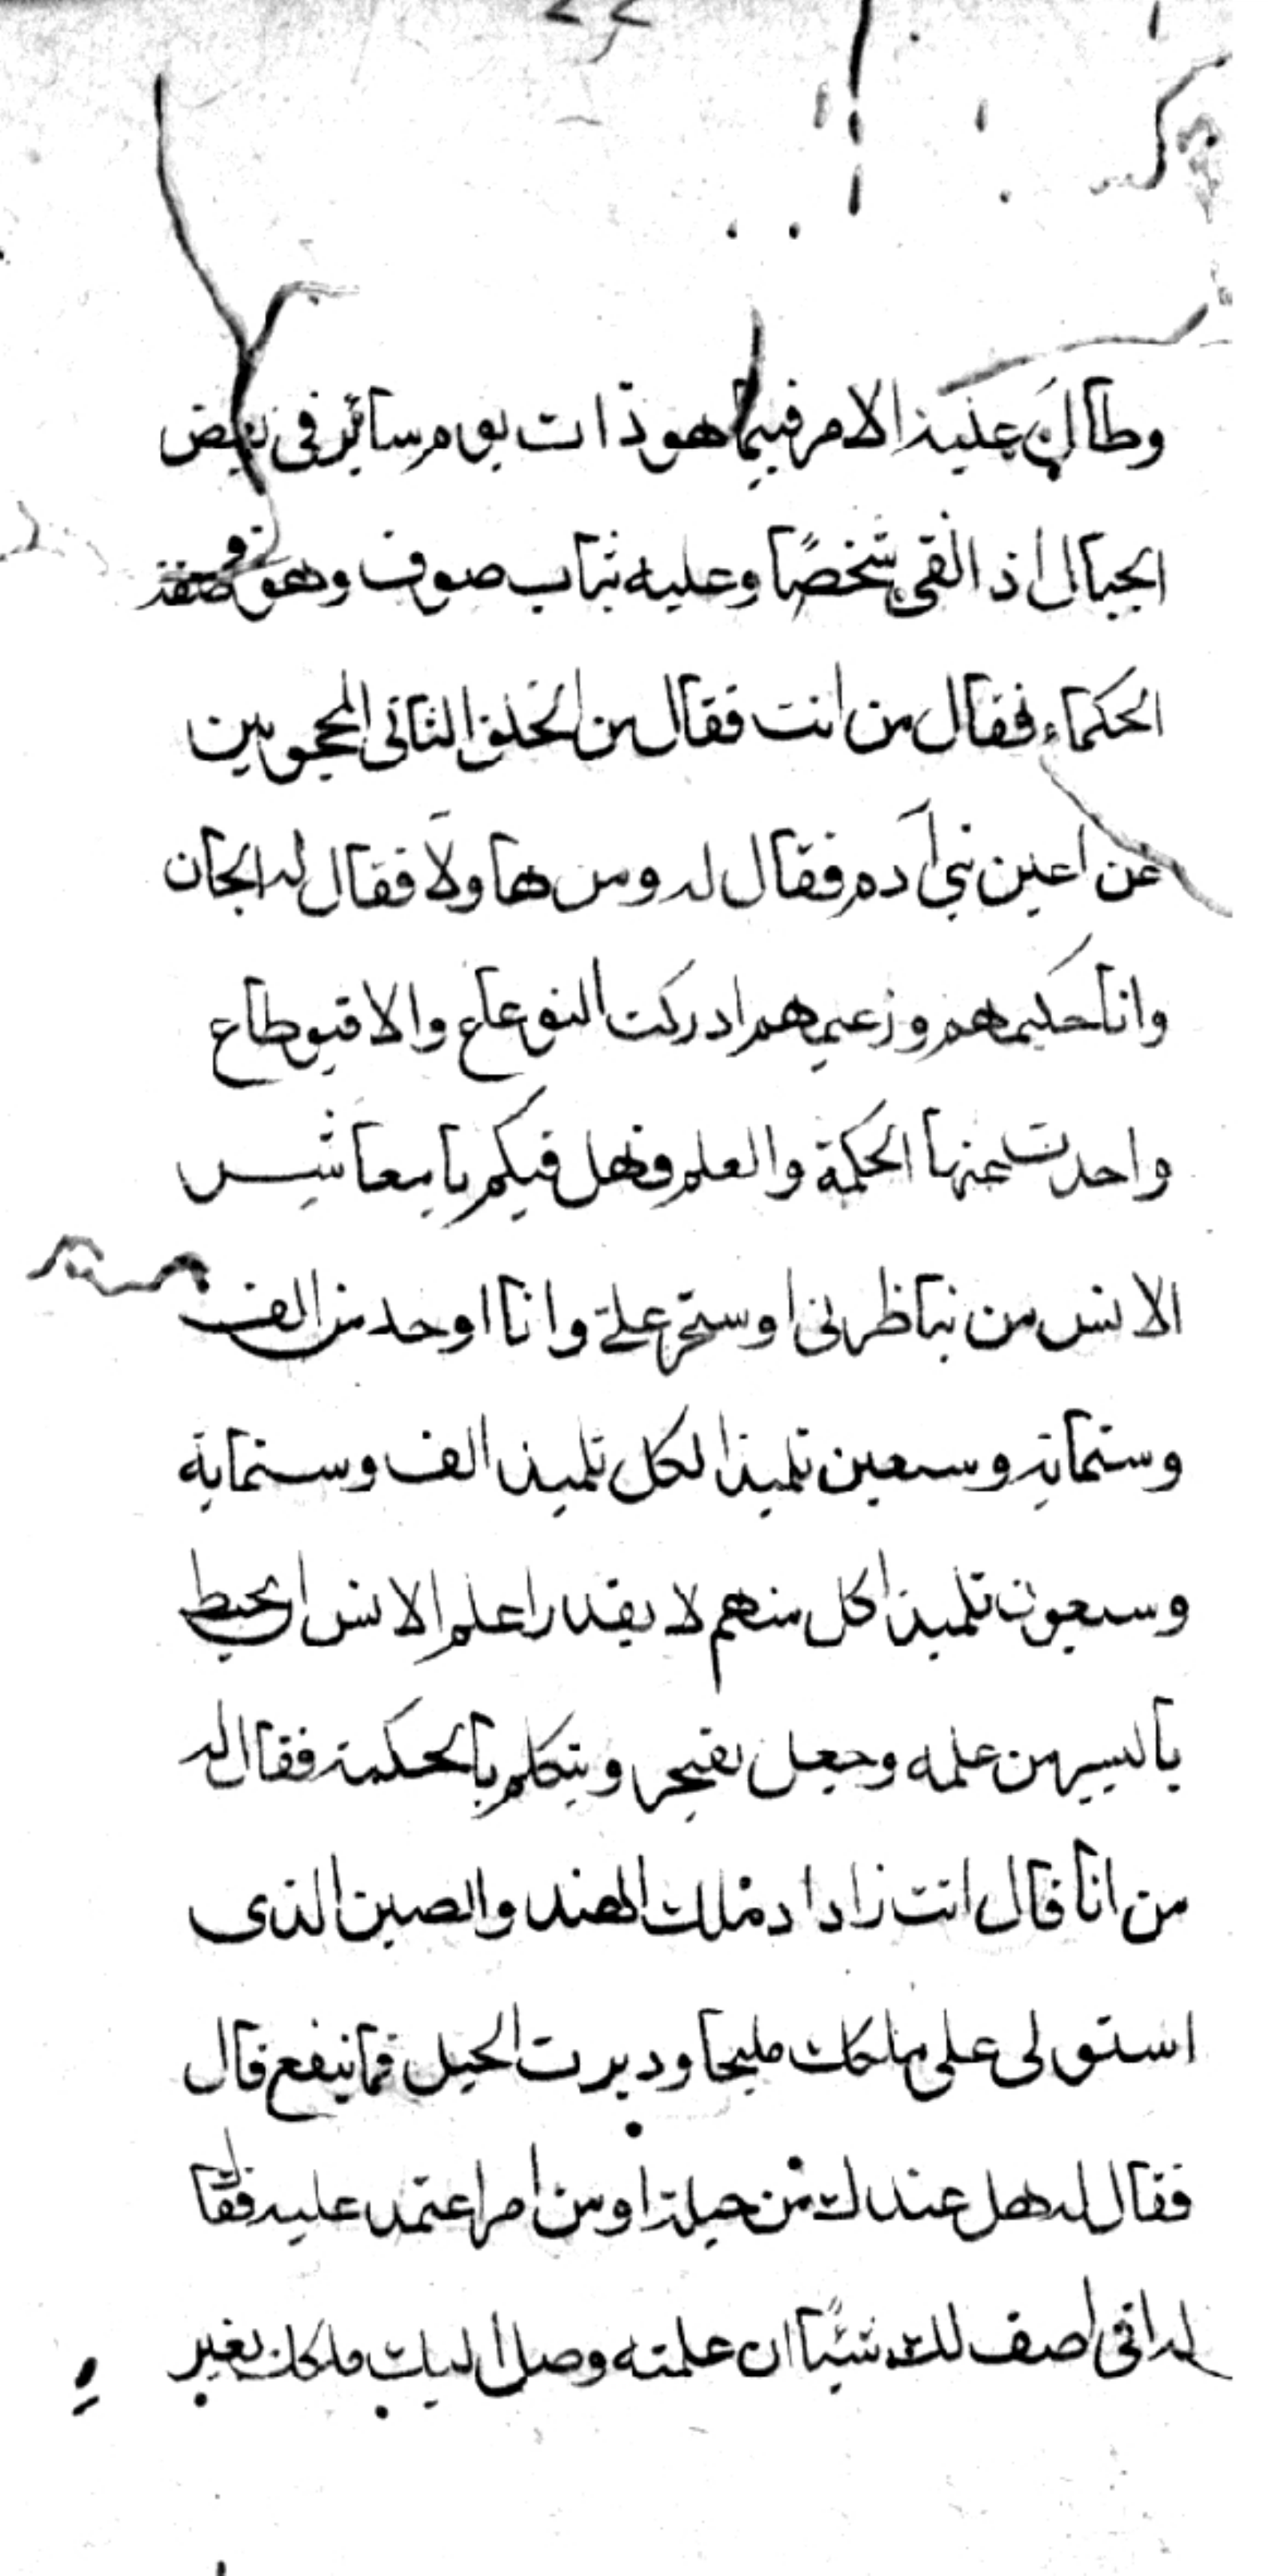 وطال عليه الامر فبينما هو ذات يوم سائر فى بعض
الجبال اذ القى شخصًا وعليه ثياب صوف وهو فى صفة
الحكماء فقال من انت فقال من الخلق الثانى المحجوبين
عن اعين بنى آدم فقال له ومن هاولاَ فقال له الجان
وانا حكيمهم وزعيمهم ادركت النوعاع والاقيوطاع
واخدت عنها الحكمة والعلم فهل فيكم يا معاشر
الانس من يناظرنى او ستجرى علىّ وانا اوحد من الف
وستماية وسبعين تلميذا لكل تلميذ الف وستماية
وسبعون تلميذا كل منهم لا يقدر اعلم الانس ان يحيط
باليسير من علمه وجعل يفتخر ويتكلم بالحكمة فقال له
من انا قال انت زاداد ملك الهند والصين الذى
استولى على ملكك مليحا ودبرت الحيل فما ينفع قال
فقال له هل عندك من حيلة او من امر اعتمد عليه فقال
له انى اصف لك شيئًا ان علمته وصل اليك ملكك بغير